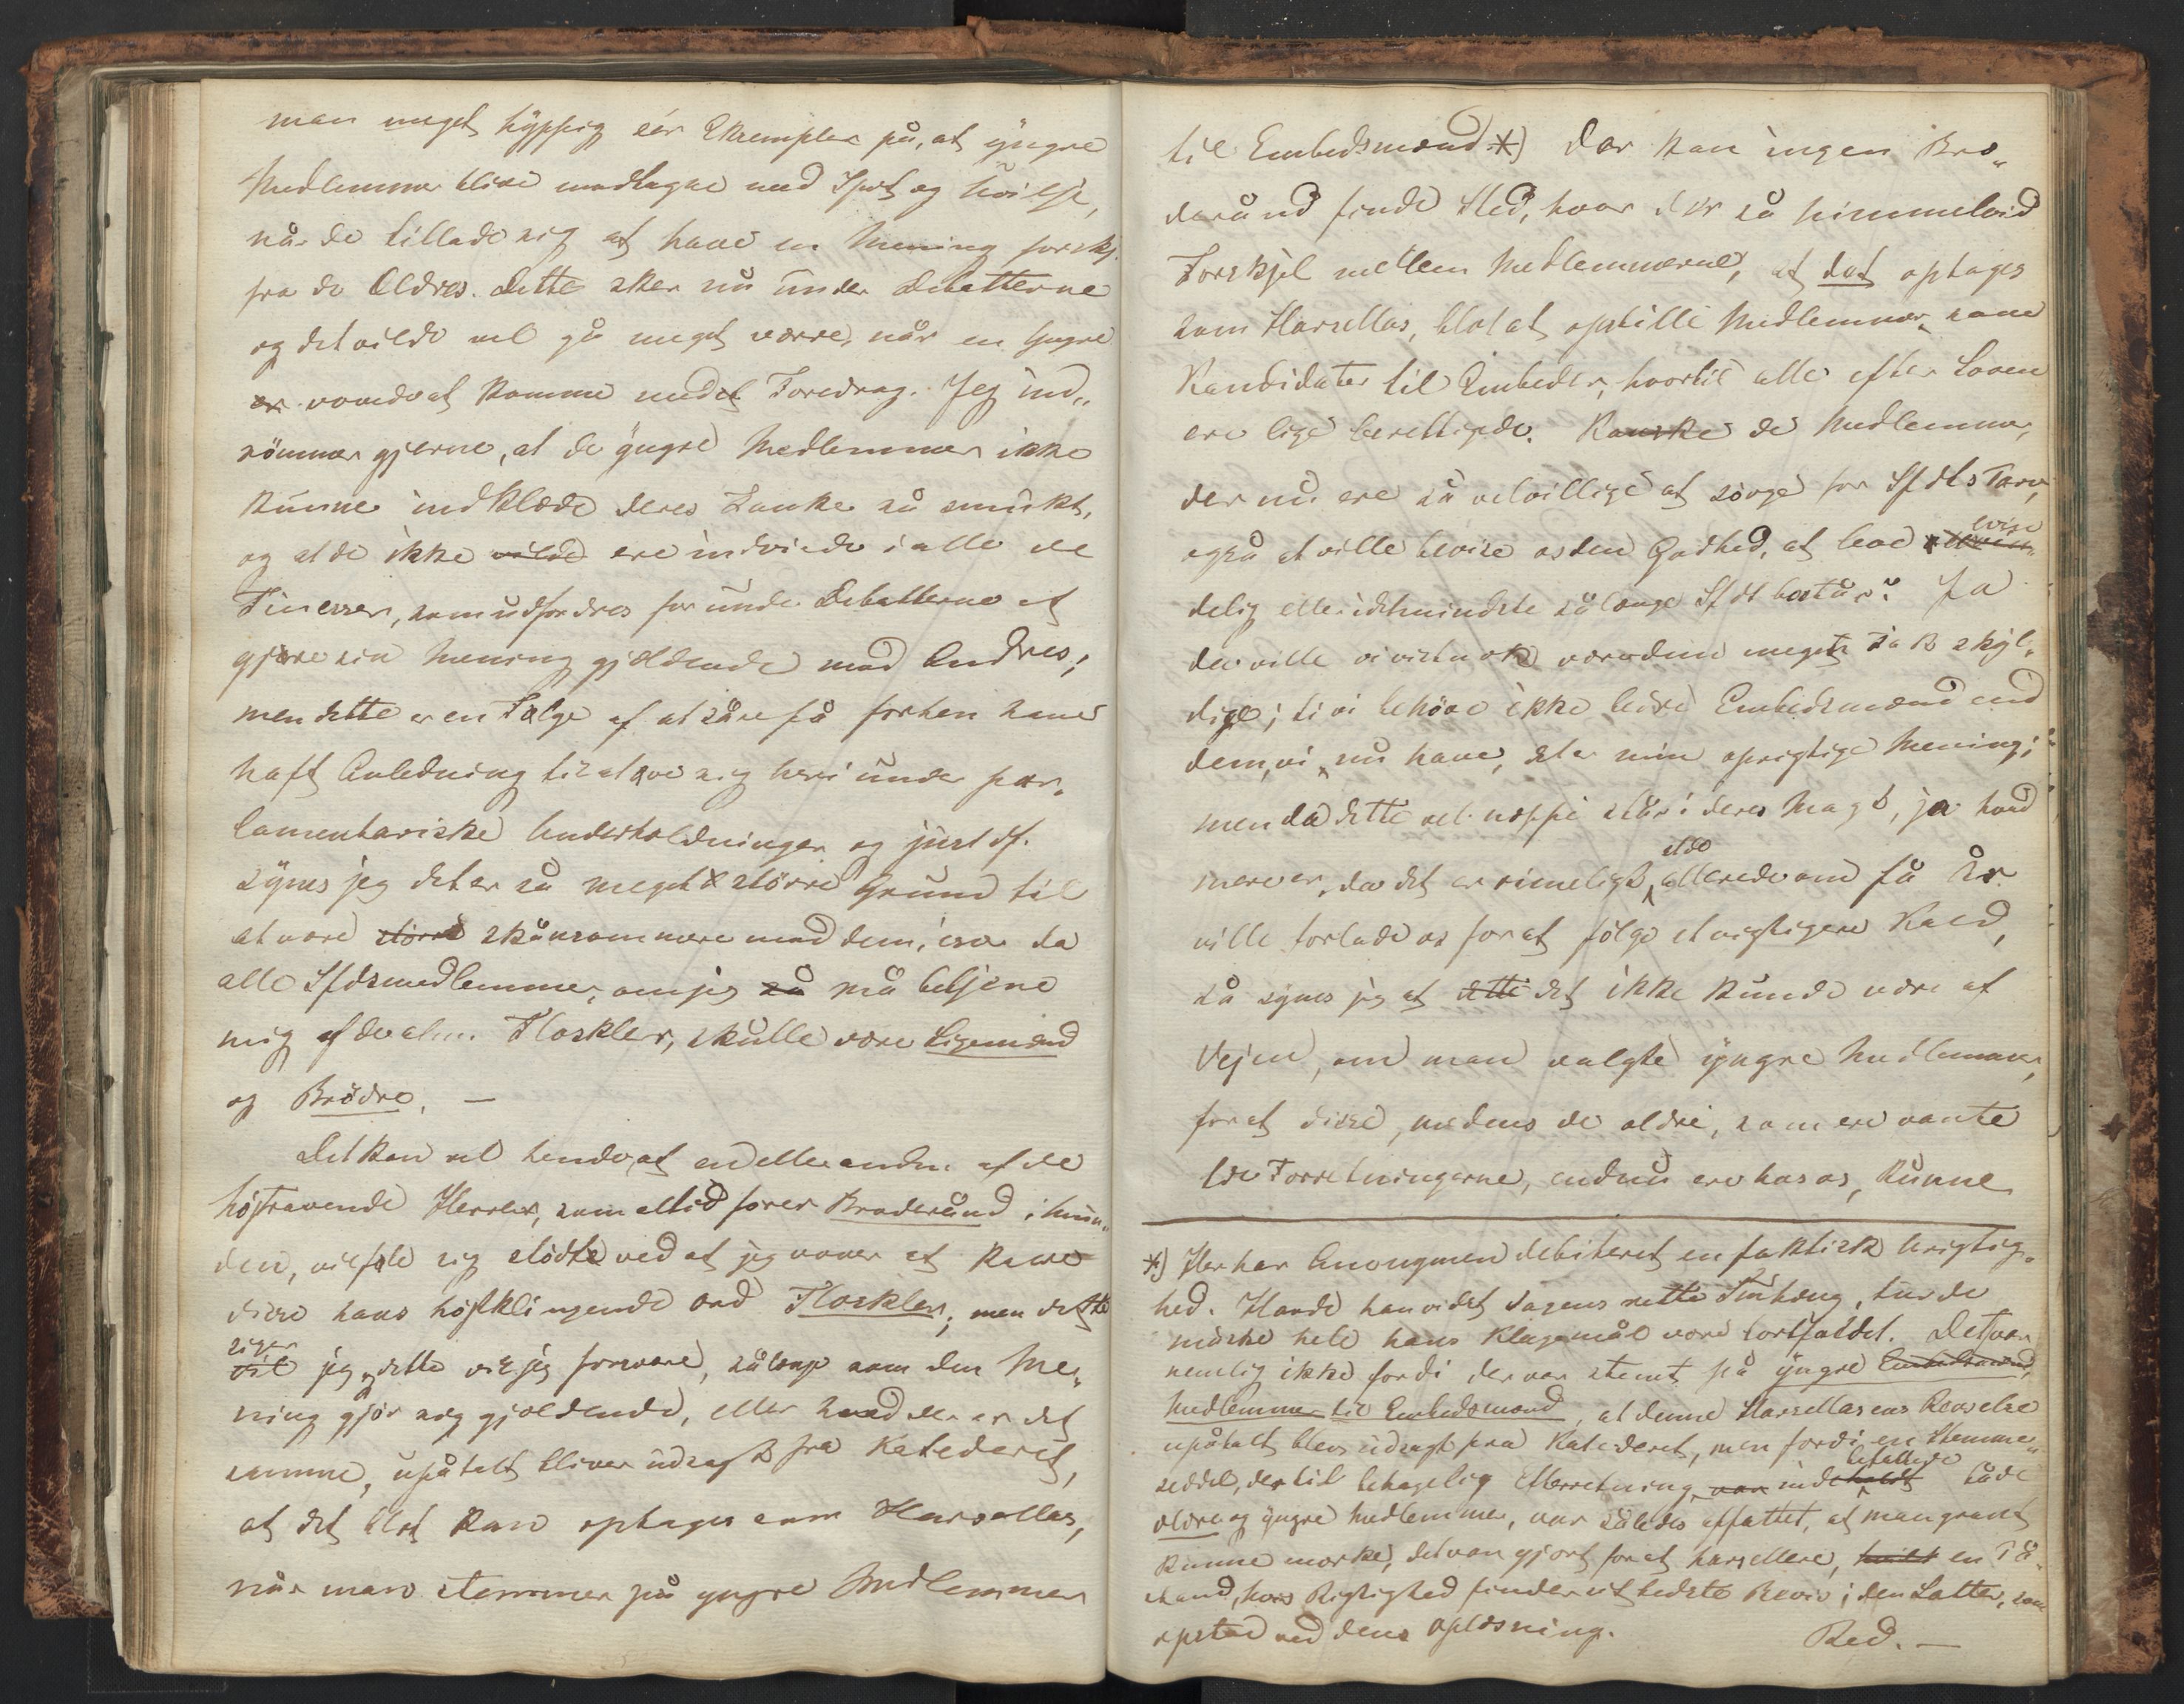 man meget hyppig sér Exempler på, at yngre
Medlemmer blive modtagne med Spot og Hvislje,
når de tillade sig at have en Mening forskj.
fra de Ældres. Dette sker nu under Debatterne
og det vilde vel gå meget værre, når en Yngre
er vovede at komme med et Foredrag. Jeg ind„
römmer gjerne, at de yngre Medlemmer ikke
kunne indklæde deres Tanker så smukt,
og at de ikke vilde ere indviede i alle de
Finesser, som udfordres for under Debatterne at
gjøre sin Mening gjældende mod Andres;
men dette er en Følge af at såre få forhen have
haft Anledning til at øve sig heri under par„
lamentariske Underholdninger og just df.
synes jeg det er så meget större Grund til
at være større skånsommere mod dem, især da
alle Sfdsmedlemmer, om jeg så må betjene
mig af de alm. Floskler, skulle være Ligemænd
og Brödre. —
Det kan vel hende, at en eller anden af de
höjtravende Herrer, som altid fører Broderånd i Mun„
den, vil føle sig stödt ved at jeg vover at kalde
disse hans höjtklingende Ord Floskler; men dette
siger
vil jeg, og dette vil jeg forsvare, sålænge som den Me„
ning gjör sig gjældende, eller hvad der er det
samme, upåtalt bliver udsagt fra Katederet,
at det blot kan optages som Harsellas,
når man stemmer på yngre Medlemmer
til Embedsmænd *) Der kan ingen Bro„
derånd finde Sted, hvor der er så himmelvid
Forskjel mellem Medlemmerne, at det optages
som Harsellas, blot at opstille Medlemmer som
Kandidater til Embeder, hvortil alle efter Loven
ere lige berettigede. Kanske de Medlemmer,
der nu ere så velvillige at sörge for Sfdts Tarv,
også at ville bevise os den Godhed, at leve
delig eller idetmindste sålænge Sfdt består? Ja
da ville vi vistnok være dem megen Tak skyl„
dige; ti vi behöve ikke bedre Embedsmænd end
dem, vi nu have, det er min oprigtige Mening;
men da dette vel næppe står i deres Magt, ja hvad
mere er, da det er rimeligt, allerede om få År
ville forlade os for at fölge et vigtigere Kald,
så synes jeg at dette det ikke kunde være af
Vejen, om man valgte yngre Medlemmer,
for at disse, medens de ældre, som ere vante
til Forretningerne, endnu ere hos os, kunne
*) Her har Anonymen debiteret en faktisk Urigtig„
hed. Havde han vidst Sagens rette Smhæng, turde
måske hele hans Klagemål være bortfaldet. Det var
nemlig ikke fordi der var stemt på yngre Embedsmænd,
Medlemmer til Embedsmænd, at denne Harsellasens Revselse
upåtalt blev udsagt fra Katederet, men fordi en Stemme„
seddel, der til behagelig Efterretning var indeholdt både
befattede
ældre og yngre Medlemmer, var således affattet, at man grant
kunne mærke, det var gjort for at harsellere, hvilk en På„
stand, hvis Rigtighed finder sit bedste Bevis i den Latter, som
opstod ved dens Oplæsning.
Red. —